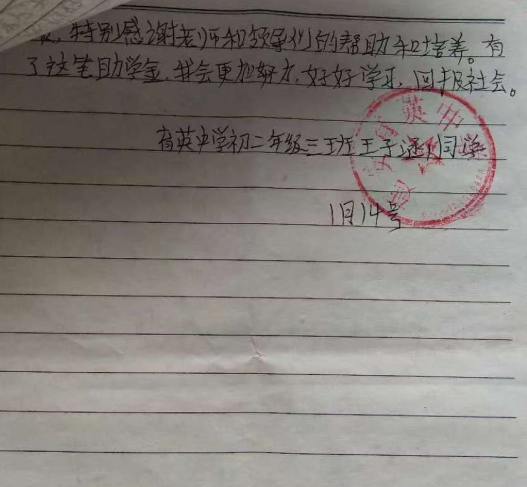 特别感谢老师和领导们的帮助和培养。有
了这笔助学金,我会更加努力,好好学习,回报社会。
育英中学初二年级三班王子涵同学
1月14号